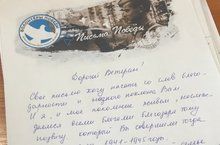 Письмо Победы
Дорогой Ветеран!
Своё письмо хочу начать со слов благо-
дарности и низкого поклона Вам.
И я, и моё поколение живём,
всеми благами благодаря тому
подвигу, который Вы совершили тогда
1941-1945